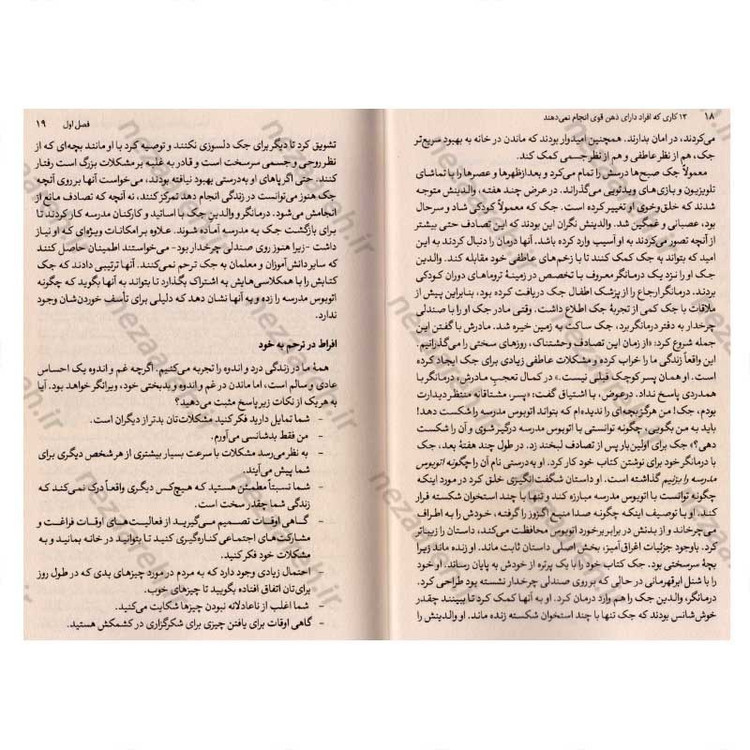 ۱۸ ۱۳ کاری که افراد دارای ذهن قوی انجام نمی‌دهند
می‌کردند، در امان بدارند. همچنین امیدوار بودند که ماندن در خانه به بهبود سریع‌تر
جک، هم از نظر عاطفی و هم از نظر جسمی کمک کند.
معمولاً جک صبح‌ها درسش را تمام می‌کرد و بعدازظهرها و عصرها را با تماشای
تلویزیون و بازی‌های ویدئویی می‌گذراند. در عرض چند هفته، والدینش متوجه
شدند که خلق‌وخوی او تغییر کرده است. جک که معمولاً کودکی شاد و سرحال
بود، عصبانی و غمگین شد. والدینش نگران این بودند که این تصادف حتی بیشتر
از آنچه تصور می‌کردند به او آسیب وارد کرده باشد. آنها درمان را دنبال کردند به این
امید که بتواند به جک کمک کنند تا با زخم‌های عاطفی خود مقابله کند. والدین
جک او را نزد یک درمانگر معروف با تخصص در زمینهٔ تروماهای دوران کودکی
بردند. درمانگر ارجاع را از پزشک اطفال جک دریافت کرده بود، بنابراین پیش از
ملاقات با جک کمی از تجربهٔ جک اطلاع داشت. وقتی مادر جک او را با صندلی
چرخدار به دفتر درمانگر برد، جک ساکت به زمین خیره شد. مادرش با گفتن این
جمله شروع کرد: «از زمان این تصادف وحشتناک، روزهای سختی را می‌گذرانیم.
این واقعاً زندگی ما را خراب کرده و مشکلات عاطفی زیادی برای جک ایجاد کرده
است. او همان پسر کوچک قبلی نیست.» در کمال تعجب مادرش، درمانگر با
همدردی پاسخ نداد. درعوض، با اشتیاق گفت: «پسر، مشتاقانه منتظر دیدارت
بودم، جک! من هرگز بچه‌ای را ندیده‌ام که بتواند اتوبوس مدرسه را شکست دهد!
باید به من بگویی، چگونه توانستی با اتوبوس مدرسه درگیر شوی و آن را شکست
دهی؟» جک برای اولین‌بار پس از تصادف لبخند زد. در طول چند هفتهٔ بعد، جک
با درمانگر برای نوشتن کتاب خود کار کرد. او به‌درستی نام آن را چگونه اتوبوس
مدرسه را بزنیم گذاشته است. او داستان شگفت‌انگیزی خلق کرد در مورد اینکه
چگونه توانست با اتوبوس مدرسه مبارزه کند و تنها با چند استخوان شکسته فرار
کند. او با توصیف اینکه چگونه صدا خفه‌کن اگزوز را گرفته، خودش را به اطراف
می‌چرخاند و از بدنش در برابر برخورد اتوبوس محافظت می‌کند، داستان را زیباتر
کرد. باوجود جزئیات اغراق‌آمیز، بخش اصلی داستان ثابت ماند. او زنده ماند زیرا
بچهٔ سرسختی بود. جک کتاب خود را با یک پرتره از خودش به پایان رساند. او خود
را با شنل ابرقهرمانی در حالی که بر روی صندلی چرخدار نشسته بود طراحی کرد.
درمانگر، والدین جک را هم وارد درمان کرد. او به آنها کمک کرد تا ببینند چقدر
خوش‌شانس بودند که جک تنها با چند استخوان شکسته زنده ماند. او والدینش را
فصل اول ۱۹
تشویق کرد تا دیگر برای جک دلسوزی نکنند و توصیه کرد با او مانند بچه‌ای که از
نظر روحی و جسمی سرسخت است و قادر به غلبه بر مشکلات بزرگ است رفتار
کنند. حتی اگر پاهای او به‌درستی بهبود نیافته بودند، می‌خواست آنها بر روی آنچه
جک هنوز می‌توانست در زندگی انجام دهد تمرکز کنند، نه آنچه که تصادف مانع از
انجامش می‌شود. درمانگر و والدین جک با اساتید و کارکنان مدرسه کار کردند تا
برای بازگشت جک به مدرسه آماده شوند. علاوه بر امکانات ویژه‌ای که او نیاز
داشت -زیرا هنوز روی صندلی چرخدار بود- می‌خواستند اطمینان حاصل کنند
که سایر دانش‌آموزان و معلمان به جک ترحم نمی‌کنند. آنها ترتیبی دادند که جک
کتابش را با همکلاسی‌هایش به اشتراک بگذارد تا بتواند به آنها بگوید که چگونه
اتوبوس مدرسه را زده و به آنها نشان دهد که دلیلی برای تأسف خوردنشان وجود
ندارد.
افراط در ترحم به خود
همهٔ ما در زندگی درد و اندوه را تجربه می‌کنیم. اگرچه غم و اندوه یک احساس
عادی و سالم است، اما ماندن در غم و اندوه و بدبختی خود، ویرانگر خواهد بود. آیا
به هر یک از نکات زیر پاسخ مثبت می‌دهید؟
- شما تمایل دارید فکر کنید مشکلات‌تان بدتر از دیگران است.
- من فقط بدشانسی می‌آورم.
- به نظر می‌رسد مشکلات با سرعت بسیار بیشتری از هر شخص دیگری برای
شما پیش می‌آیند.
- شما نسبتاً مطمئن هستید که هیچ‌کس دیگری واقعاً درک نمی‌کند که
زندگی شما چقدر سخت است.
- گاهی اوقات تصمیم می‌گیرید از فعالیت‌های اوقات فراغت و
مشارکت‌های اجتماعی کناره‌گیری کنید تا بتوانید در خانه بمانید و به
مشکلات خود فکر کنید.
- احتمال زیادی وجود دارد که به مردم در مورد چیزهای بدی که در طول روز
برای‌تان اتفاق افتاده بگویید تا چیزهای خوب.
- شما اغلب از ناعادلانه نبودن چیزها شکایت می‌کنید.
- گاهی اوقات برای یافتن چیزی برای شکرگزاری در کشمکش هستید.
nezaarah.ir